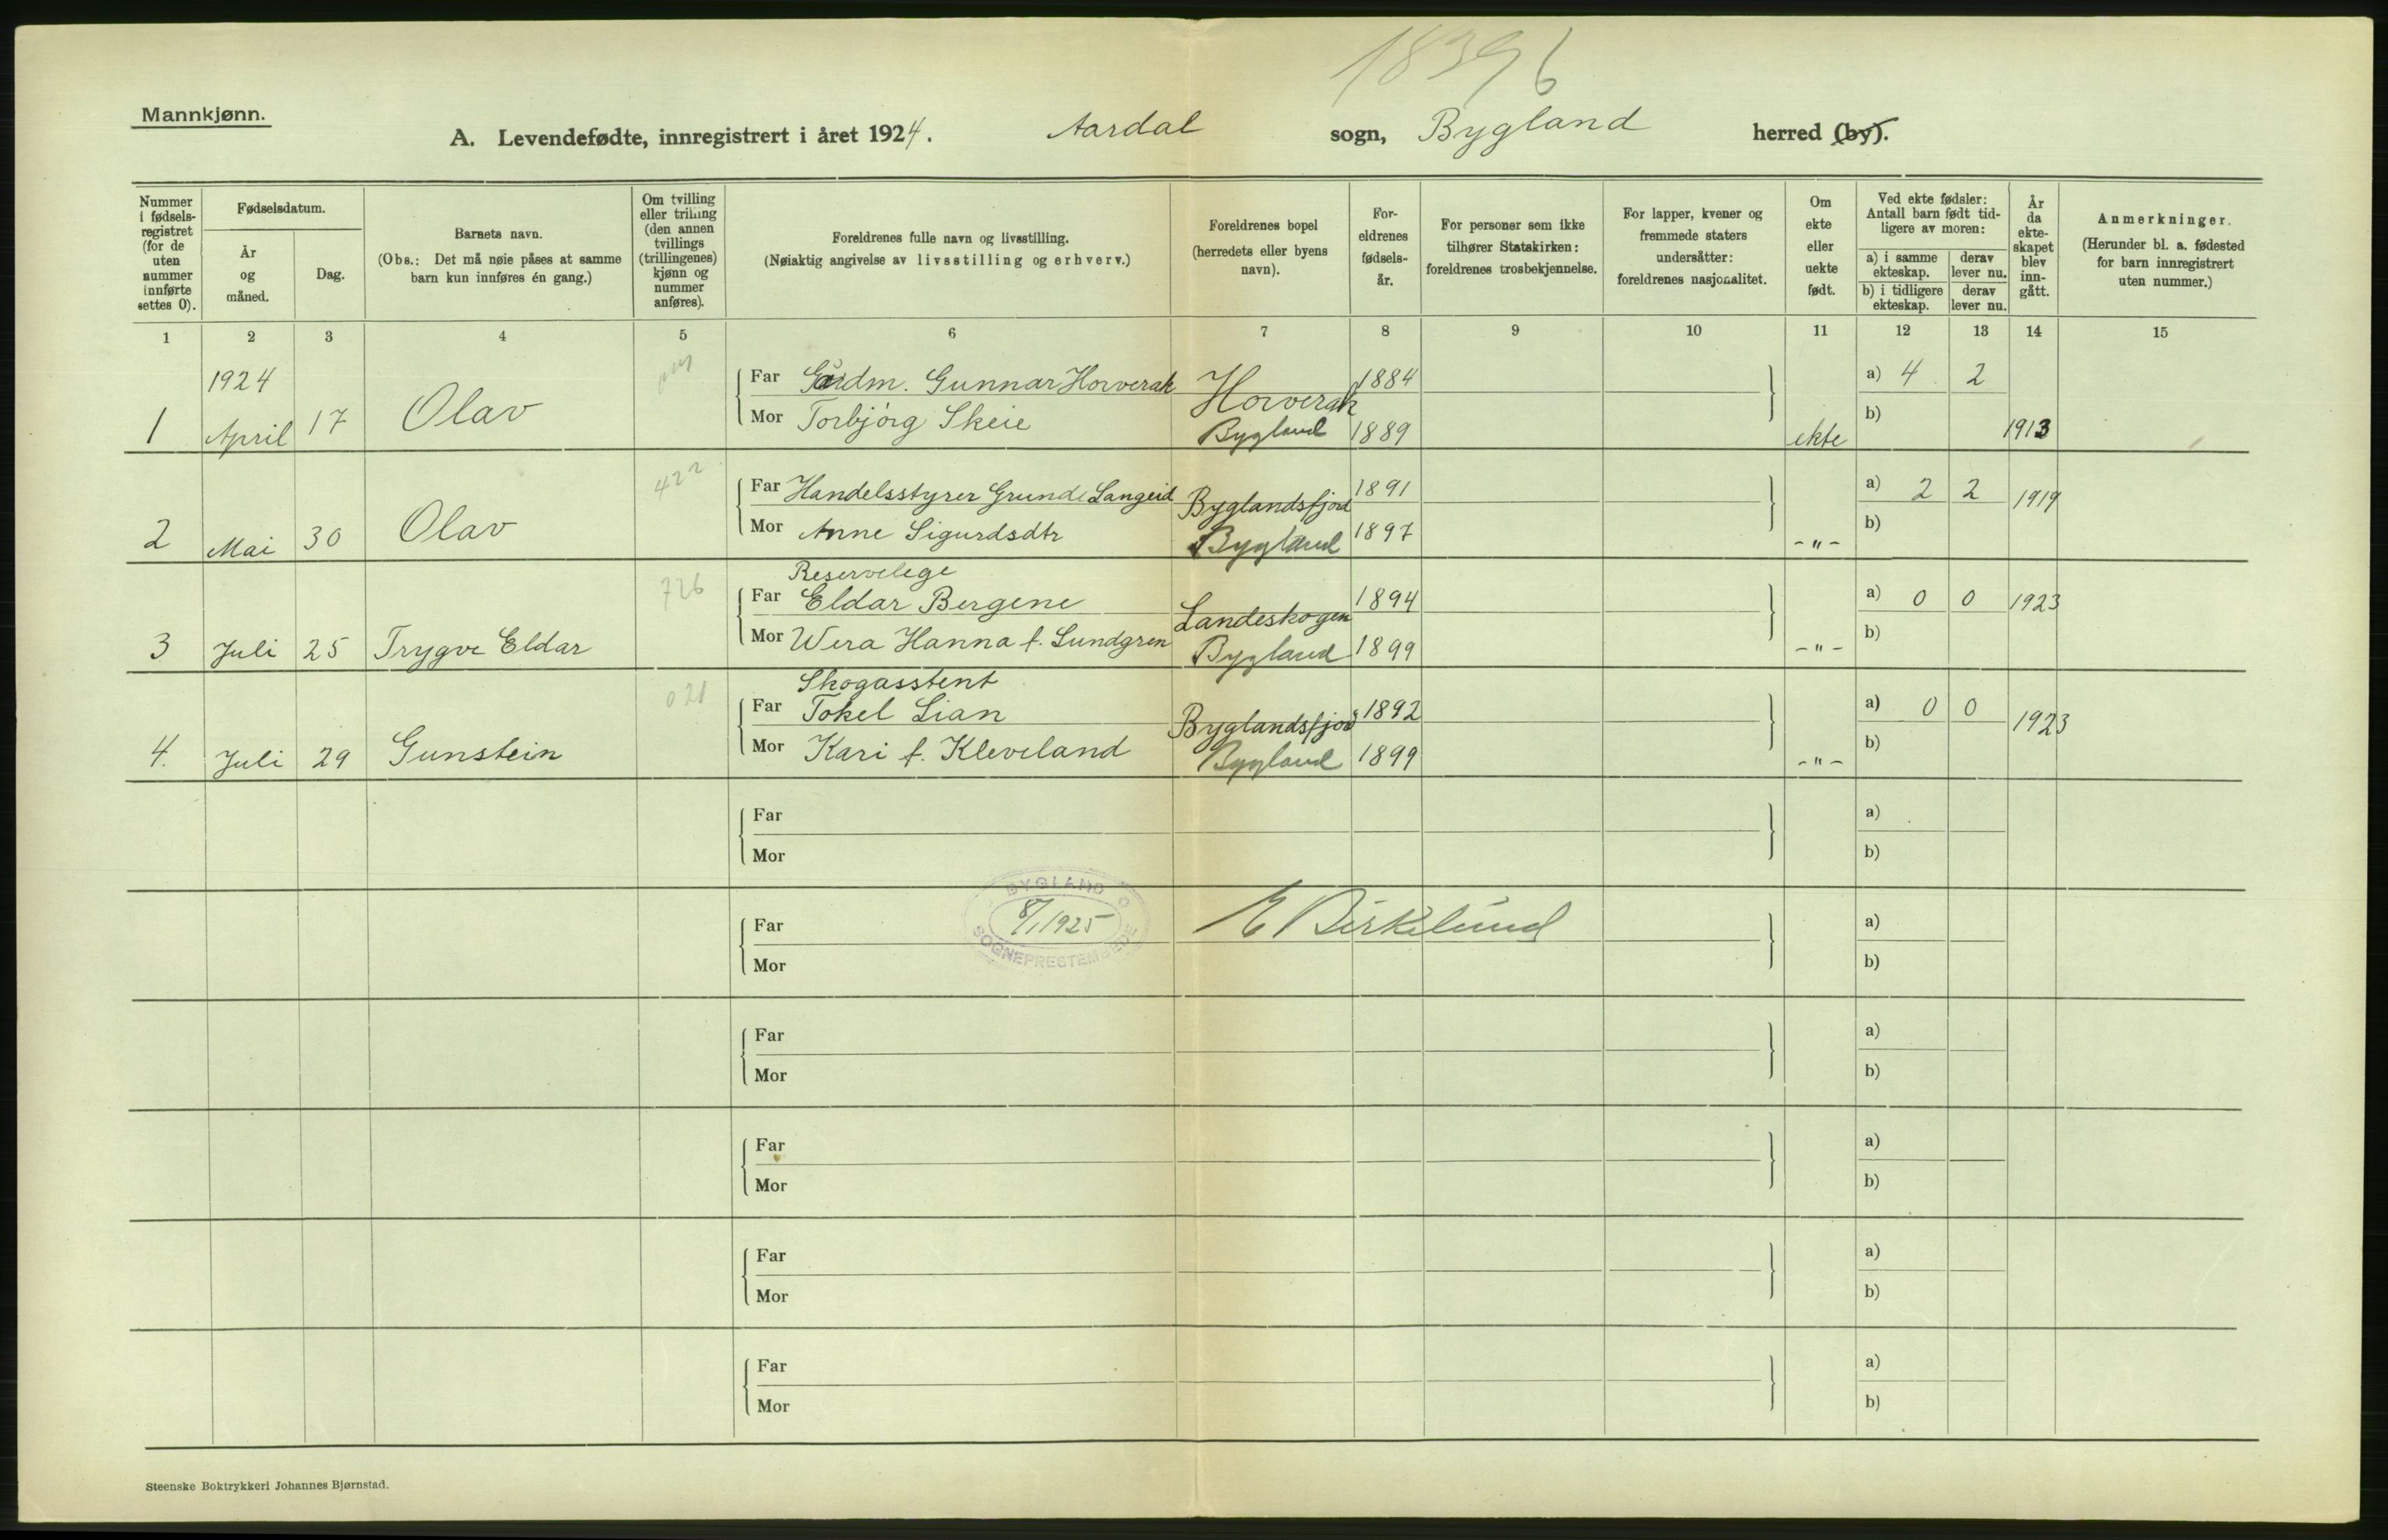 18396
Mannkjønn.
A. Levendefødte, innregistrert i året 1924. Aardal sogn, Bygland herred (by).
Nummer i fødselsregistret (for de uten nummer innførte settes 0).
Fødselsdatum.
År og måned.
Dag.
Barnets navn.
(Obs.: Det må nøie påses at samme barn kun innføres én gang.)
Om tvilling eller trilling (den annen tvillings (trillingenes) kjønn og nummer anføres).
Foreldrenes fulle navn og livsstilling.
(Nøiaktig angivelse av livsstilling og erhverv.)
Foreldrenes bopel
(herredets eller byens navn).
Foreldrenes fødselsår.
For personer som ikke tilhører Statskirken: foreldrenes trosbekjennelse.
For lapper, kvener og fremmede staters undersåtter: foreldrenes nasjonalitet.
Om ekte eller uekte født.
Ved ekte fødsler: Antall barn født tidligere av moren:
a) i samme ekteskap. derav lever nu.
b) i tidligere ekteskap. derav lever nu.
År da ekteskapet blev inngått.
Anmerkninger.
(Herunder bl. a. fødested for barn innregistrert uten nummer.)
1 2 3 4 5 6 7 8 9 10 11 12 13 14 15
1924
Far Gårdm. Gunnar Horverak Horverak 1884 a) 4 2
1 April 17 Olav Mor Torbjörg Skeie Bygland 1889 ekte b) 1913
422
Far Handelsstyrer Grunde Langeid Byglandsfjord 1891 a) 2 2 1919
2 Mai 30 Olav Mor Anne Sigurdsdtr Bygland 1897 -"- b)
726
Reservelege
Far Eldar Bergene Landeskogen 1894 a) 0 0 1923
3 Juli 25 Trygve Eldar Mor Wera Hanna f. Lundgren Bygland 1899 -"- b)
021
Skogasstent
Far Tokel Lian Byglandsfjord 1892 a) 0 0 1923
4. Juli 29 Gunstein Mor Kari f. Kleveland Bygland 1899 -"- b)
Far a)
Mor b)
BYGLAND
8/1 1925
SOGNEPRESTEMBEDE
E Birkelund
Far a)
Mor b)
Far a)
Mor b)
Far a)
Mor b)
Far a)
Mor b)
Far a)
Mor b)
Steenske Boktrykkeri Johannes Bjørnstad.